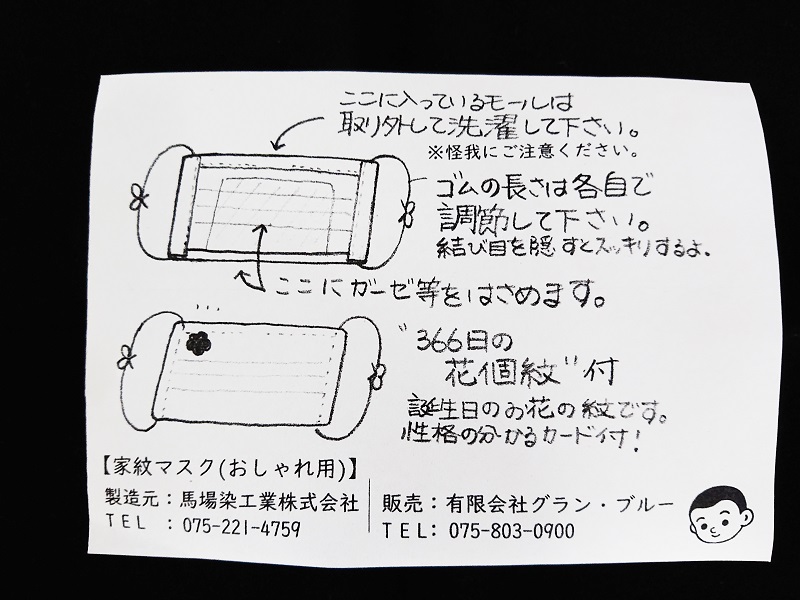 ここに入っているモールは
取り外して洗濯して下さい。
※怪我にご注意ください。
ゴムの長さは各自で
調節して下さい。
結び目を隠すとスッキリするよ。
ここにガーゼ等をはさめます。
〝366日の
花個紋〟付
誕生日のお花の紋です。
性格の分かるカード付!
【家紋マスク(おしゃれ用)】
製造元:馬場染工業株式会社
TEL :075-221-4759
販売:有限会社グラン・ブルー
TEL:075-803-0900